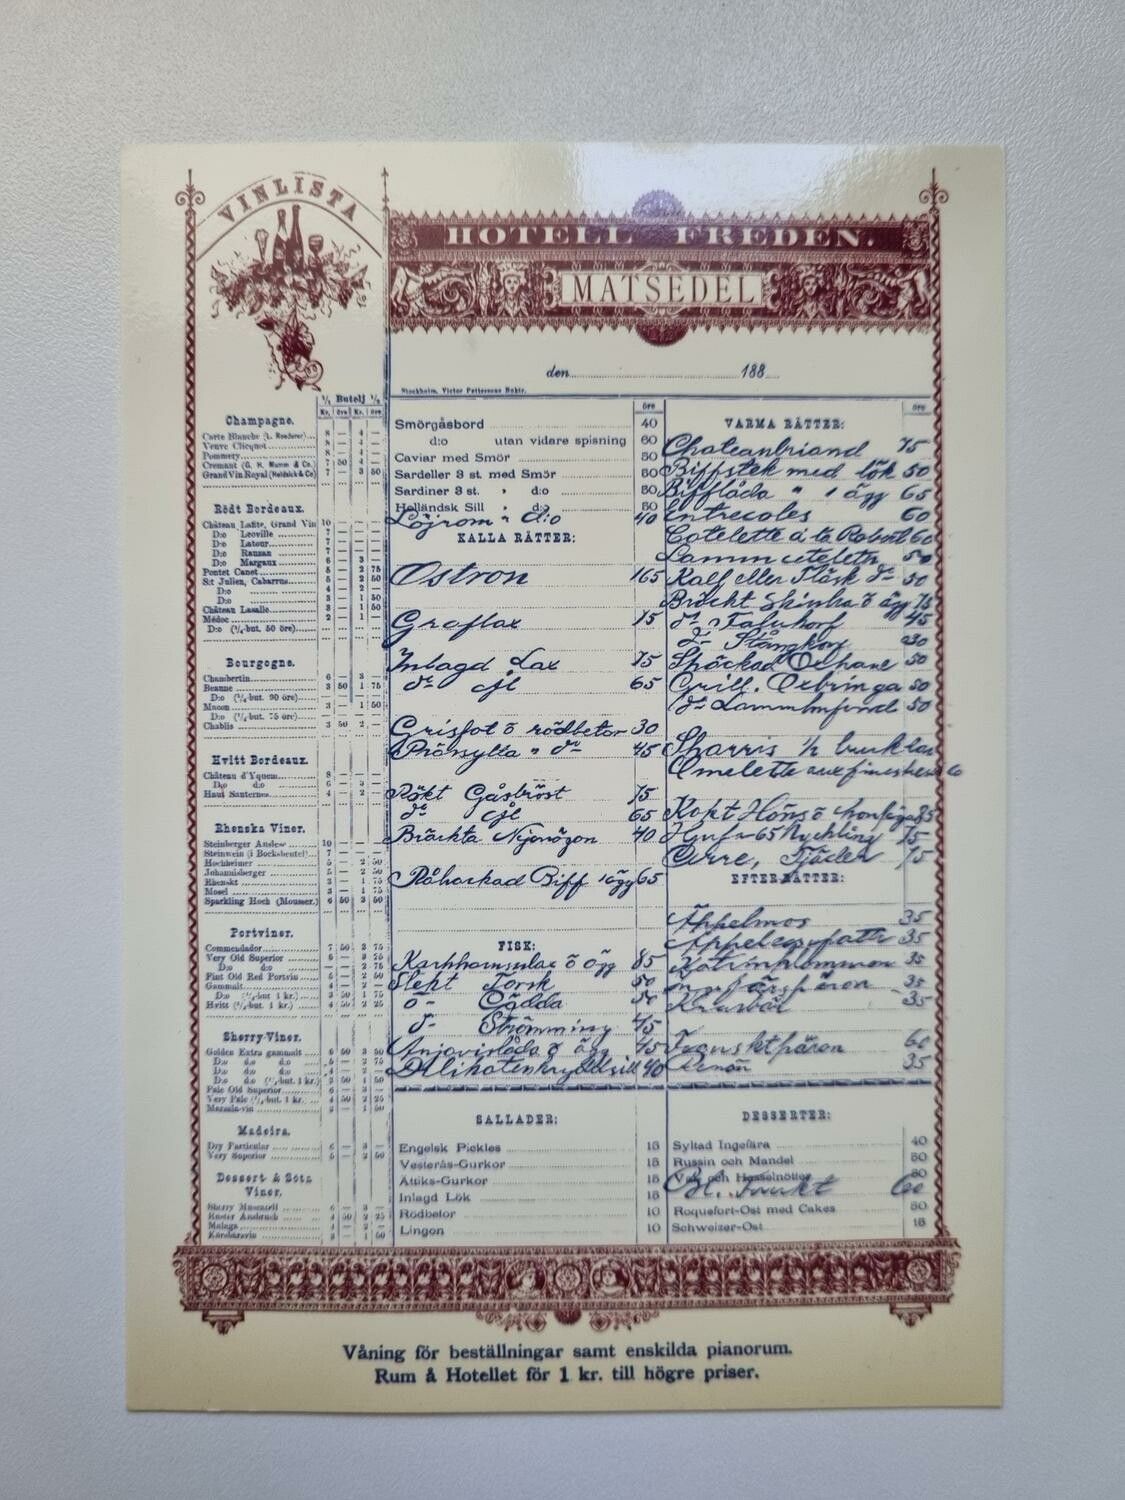 VINLISTA
HOTELL FREDEN.
MATSEDEL
den 188
Stockholm, Victor Petterssons Boktr.
1/1 Butelj 1/2
Kr. öre Kr. öre
Champagne.
Carte Blanche (L. Roederer) 8 — 4 —
Veuve Clicquot 8 — 4 —
Pommery 8 — 4 —
Cremant (G. H. Mumm & Co.) 7 50 4 —
Grand Vin Royal (Heidsick & Co) 7 — 3 50
Rödt Bordeaux.
Château Lafite, Grand Vin 10 — — —
D:o Leoville 7 — — —
D:o Latour 7 — — —
D:o Rauzan 7 — — —
D:o Margaux 6 — 3 —
Pontet Canet 5 — 2 75
S:t Julien, Cabarrus 5 — 2 50
D:o 4 — 2 —
D:o 3 — 1 50
Château Lasalle 3 — 1 50
Médoc 2 — 1 —
D:o (1/4-but. 50 öre)
Bourgogne.
Chambertin 6 — 3 —
Beaune 3 50 1 75
D:o (1/4-but. 90 öre)
Macon 3 — 1 50
D:o (1/4-but. 75 öre)
Chablis 3 50 2 —
Hvitt Bordeaux.
Château d'Yquem 8 — — —
D:o d:o
Haut Sauternes 4 — 2 —
Rhenska Viner.
Steinberger Auslese 10 — — —
Steinwein (i Bocksbeutel) 7 — — —
Hochheimer 5 — 2 50
Johannisberger 5 — 2 50
Rhenskt 3 — 1 75
Mosel 3 — 1 75
Sparkling Hoch (Mousser.) 6 50 3 50
Portviner.
Commendador 7 50 3 75
Very Old Superior
D:o d:o — — 2 75
Fint Old Red Portvin 5 — 2 50
Gammalt
D:o (1/4-but. 1 kr.) 3 50 1 75
Hvitt (1/4-but. 1 kr.) 4 50 2 25
Sherry-Viner.
Golden Extra gammalt 6 50 3 50
D:o d:o d:o
D:o d:o d:o
D:o d:o (1/4-but. 1 kr.) 3 50 1 75
Pale Old Superior
Very Pale (1/4-but. 1 kr. 4 50 2 25
Marsala-vin
Madeira.
Dry Particular 6 — 3 —
Very Superior 5 — 2 50
Dessert & Söta
Viner.
Sherry Muscatell
Ruster Ausbruch 4 50 2 25
Malaga
Körsbärsvin
öre
Smörgåsbord 40
d:o utan vidare spisning 60
Caviar med Smör 50
Sardeller 3 st. med Smör 50
Sardiner 3 st. " d:o 50
Holländsk Sill " d:o 50
Löjrom " d:o 40
KALLA RÄTTER:
Ostron 165
Graflax 75
Inlagd Lax 75
do ½ 65
Grisfot o rödbetor 30
Pressylta " do 45
Rökt Gåsbröst 75
do ½ 65
Bräckta Nejonögon 40
Råhackad Biff 1 ägg 65
FISK:
85
Stekt Torsk 50
do Gädda 50
do Strömming 45
Anjovislåda o ägg 45
Delikatesskryddsill 40
SALLADER:
Engelsk Pickles 15
Vesterås-Gurkor 15
Ättiks-Gurkor 15
Inlagd Lök 15
Rödbetor 10
Lingon 10
öre
VARMA RÄTTER:
Chateaubriand 75
Biffstek med lök 50
Bifflåda " 1 ägg 65
Entrecotes 60
Cotelette à la Robert 60
Lammcotelett 50
Kalf eller Fläsk do 50
Bräckt Skinka o ägg 75
do 45
do Stångkorf 30
50
Grill. Oxbringa 50
do 50
Omelette aux fines herbes 60
Kokt Höns 85
75
Orre, Tjäder 75
EFTERRÄTTER:
Äppelmos 35
35
Katrinplommon 35
35
Krusbär 35
60
35
DESSERTER:
Syltad Ingefära 40
Russin och Mandel 50
Val och Hasselnötter 50
Bl. Frukt 60
Roquefort-Ost med Cakes 50
Schweizer-Ost 15
Våning för beställningar samt enskilda pianorum.
Rum å Hotellet för 1 kr. till högre priser.